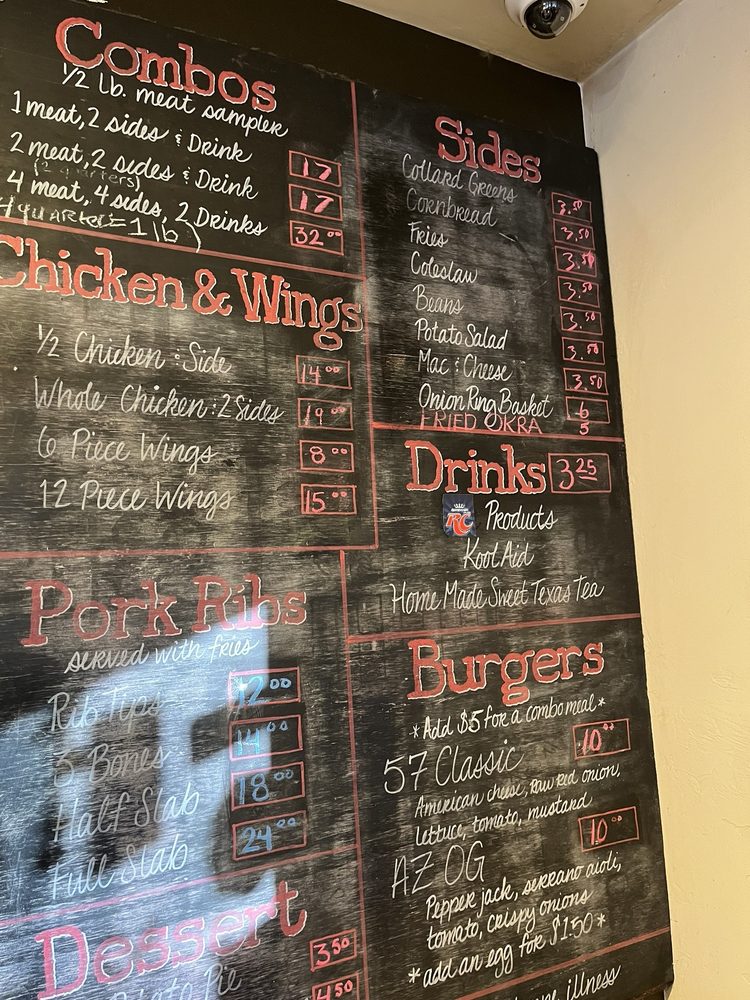 Combos
1/2 lb. meat sampler
1 meat, 2 sides & Drink 17
2 meat, 2 sides & Drink 17
4 meat, 4 sides, 2 Drinks 32.00
= 1 lb)
Chicken & Wings
1/2 Chicken : Side 14.00
Whole Chicken : 2 Sides 19.00
6 Piece Wings 8.00
12 Piece Wings 15.00
Pork Ribs
served with fries
Rib Tips 12.00
3 Bones 14.00
Half Slab 18.00
Full Slab 24.00
Dessert
3.50
Pie 4.50
Sides
Collard Greens 3.50
Cornbread 3.50
Fries 3.50
Coleslaw 3.50
Beans 3.50
Potato Salad 3.50
Mac & Cheese 3.50
Onion Ring Basket 6
FRIED OKRA 5
Drinks 3.25
RC Products
Kool Aid
Home Made Sweet Texas Tea
Burgers
*Add $5 for a combo meal*
57 Classic 10.00
American cheese, raw red onion,
lettuce, tomato, mustard
AZ OG 10.00
Pepper jack, serrano aioli,
tomato, crispy onions
*add an egg for $1.50*
illness